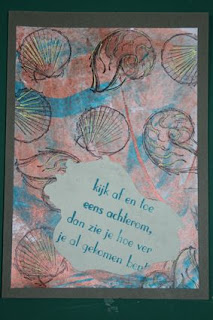 kijk af en toe
eens achterom,
dan zie je hoe ver
je al gekomen bent